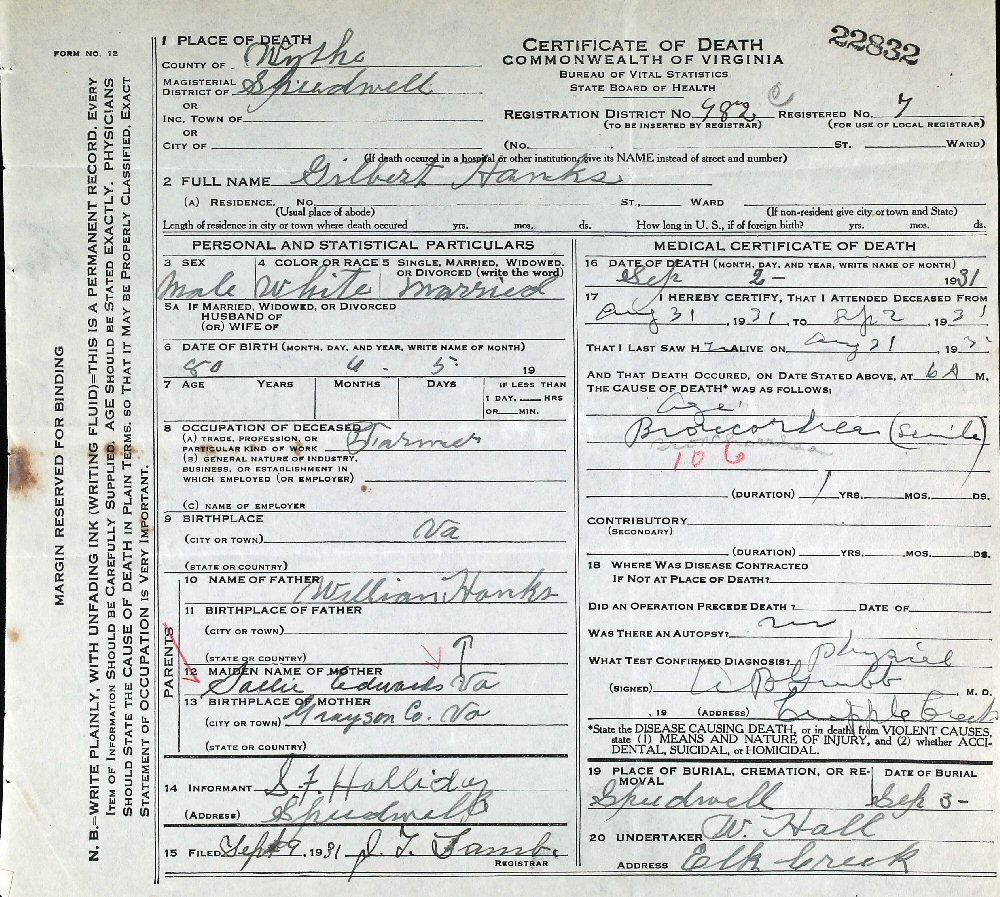 FORM NO. 12
MARGIN RESERVED FOR BINDING
N. B.=WRITE PLAINLY, WITH UNFADING INK (WRITING FLUID)=THIS IS A PERMANENT RECORD. EVERY
ITEM OF INFORMATION SHOULD BE CAREFULLY SUPPLIED. AGE SHOULD BE STATED EXACTLY. PHYSICIANS
SHOULD STATE THE CAUSE OF DEATH IN PLAIN TERMS, SO THAT IT MAY BE PROPERLY CLASSIFIED. EXACT
STATEMENT OF OCCUPATION IS VERY IMPORTANT.
1 PLACE OF DEATH
COUNTY OF Wythe
MAGISTERIAL
DISTRICT OF Speedwell
OR
INC. TOWN OF
OR
CITY OF
CERTIFICATE OF DEATH
COMMONWEALTH OF VIRGINIA
BUREAU OF VITAL STATISTICS
STATE BOARD OF HEALTH
22832
REGISTRATION DISTRICT NO. 982 REGISTERED NO. 7
(TO BE INSERTED BY REGISTRAR) (FOR USE OF LOCAL REGISTRAR)
(NO. ST. WARD)
(If death occured in a hospital or other institution, give its NAME instead of street and number)
2 FULL NAME Gilbert Hanks
(A) RESIDENCE. NO. ST., WARD
(Usual place of abode) (If non-resident give city or town and State)
Length of residence in city or town where death occured yrs. mos. ds. How long in U. S., if of foreign birth? yrs. mos. ds.
PERSONAL AND STATISTICAL PARTICULARS
3 SEX 4 COLOR OR RACE 5 SINGLE, MARRIED, WIDOWED,
OR DIVORCED (write the word)
Male White Married
5A IF MARRIED, WIDOWED, OR DIVORCED
HUSBAND OF
(OR) WIFE OF
6 DATE OF BIRTH (MONTH, DAY, AND YEAR, WRITE NAME OF MONTH)
80 4 5 19
7 AGE YEARS MONTHS DAYS IF LESS THAN
1 DAY, HRS
OR MIN.
8 OCCUPATION OF DECEASED
(A) TRADE, PROFESSION, OR
PARTICULAR KIND OF WORK Farmer
(B) GENERAL NATURE OF INDUSTRY,
BUSINESS, OR ESTABLISHMENT IN
WHICH EMPLOYED (OR EMPLOYER)
(C) NAME OF EMPLOYER
9 BIRTHPLACE
(CITY OR TOWN) Va
(STATE OR COUNTRY)
PARENTS
10 NAME OF FATHER William Hanks
11 BIRTHPLACE OF FATHER
(CITY OR TOWN)
(STATE OR COUNTRY)
12 MAIDEN NAME OF MOTHER
Sallie Edwards Va
13 BIRTHPLACE OF MOTHER
(CITY OR TOWN) Grayson Co. Va
(STATE OR COUNTRY)
14 INFORMANT S. F. Holliday
(ADDRESS) Speedwell
15 FILED Sept 9, 1931 J. T. Lamb.
REGISTRAR
MEDICAL CERTIFICATE OF DEATH
16 DATE OF DEATH (MONTH, DAY, AND YEAR, WRITE NAME OF MONTH)
Sep 2- 1931
17 I HEREBY CERTIFY, THAT I ATTENDED DECEASED FROM
Aug 31, 1931, TO Sep 2, 1931
THAT I LAST SAW H ALIVE ON Aug 31, 19
AND THAT DEATH OCCURED, ON DATE STATED ABOVE, AT 6 A M,
THE CAUSE OF DEATH* WAS AS FOLLOWS;
Age
Broncorhea (Senile)
Bronchorrhea
106
(DURATION) YRS. MOS. DS.
CONTRIBUTORY
(SECONDARY)
(DURATION) YRS. MOS. DS.
18 WHERE WAS DISEASE CONTRACTED
IF NOT AT PLACE OF DEATH?
DID AN OPERATION PRECEDE DEATH? DATE OF
WAS THERE AN AUTOPSY? no
WHAT TEST CONFIRMED DIAGNOSIS? Physical
(SIGNED) Grubb, M. D.
, 19 (ADDRESS) Cripple Creek
*State the DISEASE CAUSING DEATH, or in deaths from VIOLENT CAUSES,
state (1) MEANS AND NATURE OF INJURY, and (2) whether ACCI-
DENTAL, SUICIDAL, or HOMICIDAL.
19 PLACE OF BURIAL, CREMATION, OR RE-
MOVAL DATE OF BURIAL
Speedwell Sep 3-
20 UNDERTAKER W. Hall
ADDRESS Elk Creek